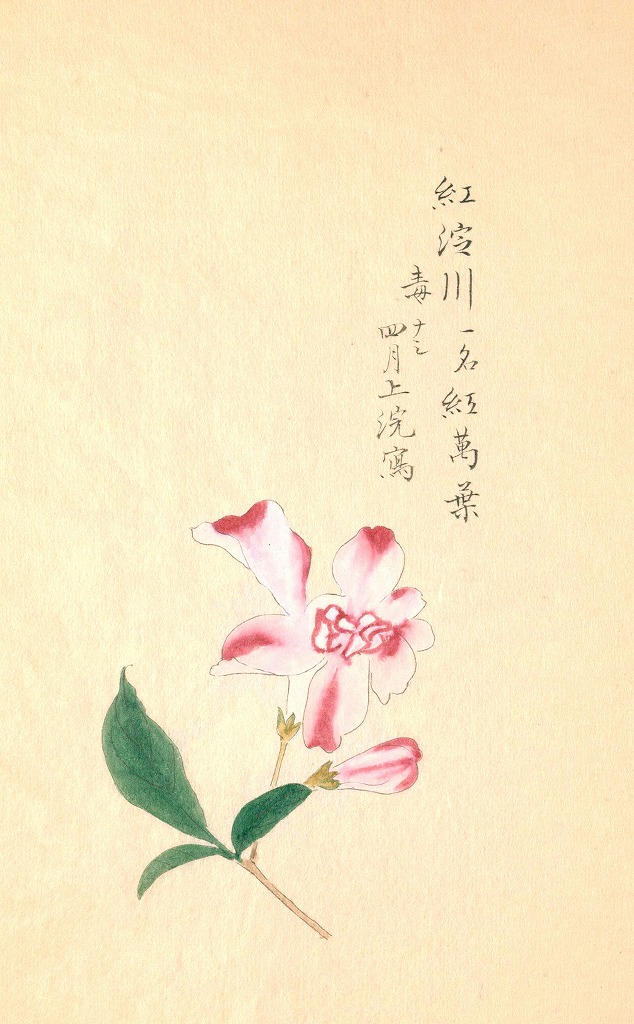 紅淀川一名紅萬葉
毒ナシ
四月上浣寫